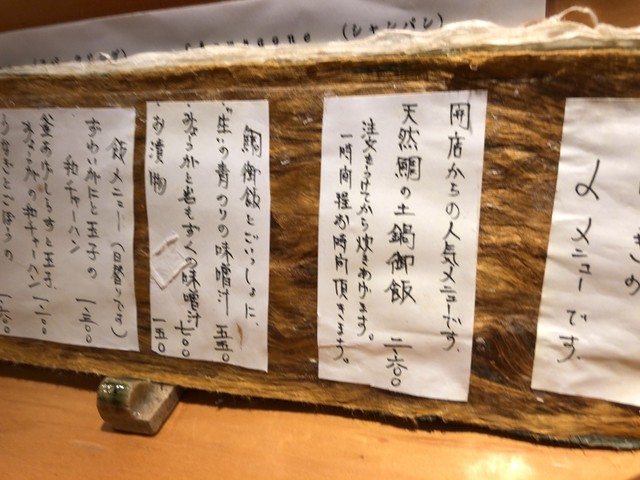 Champagne (シャンパン)
メニューです。
開店からの人気メニューです。
天然鯛の土鍋御飯 二、六〇〇
注文をうけてから炊きあげます。
一時間程お時間頂きます。
鯛御飯とごいっしょに、
・生いの青のりの味噌汁 五五〇
・みょうがと岩もずくの味噌汁 七〇〇
・お漬物 一五〇
飯メニュー(日替わり)
ずわい蟹と玉子の
和チャーハン 一、二〇〇
釜あげしらすと玉子、
みょうがの和チャーハン 一、一〇〇